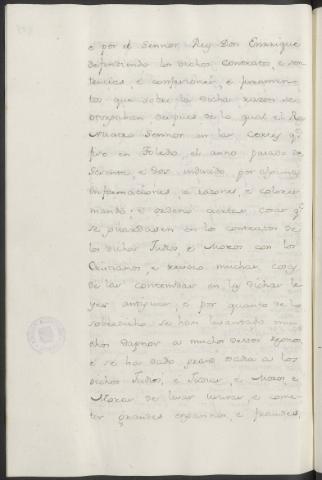 e por el Sennor Rey Don Enrrique
defendiendo los dichos Contratos, e sen
tencias, e confesiones, e juramen
tos que sobre la dicha razon se
otorgaban, despues de lo qual el Rey
Nuestro Sennor en las Cortes qe
fizo en Toledo, el anno pasado de
sesenta, e dos, inducido por algunas
informaciones, e razones, e colores
mando, e ordeno ciertas cosas qe
se guardasen en los contratos de
los dichos Judios, e Moros con los
Christianos, e revoco muchas cosas
de las contenidas en las dichas le
yes antiguas, e por quanto de lo
sobredicho se han levantado mu
chos dapnos a muchos destos regnos
e se ha dado grand osadia a los
dichos Judios, e Judias, e Moros, e
Moras de levar usuras, e come
ter grandes engannos, e fraudes,